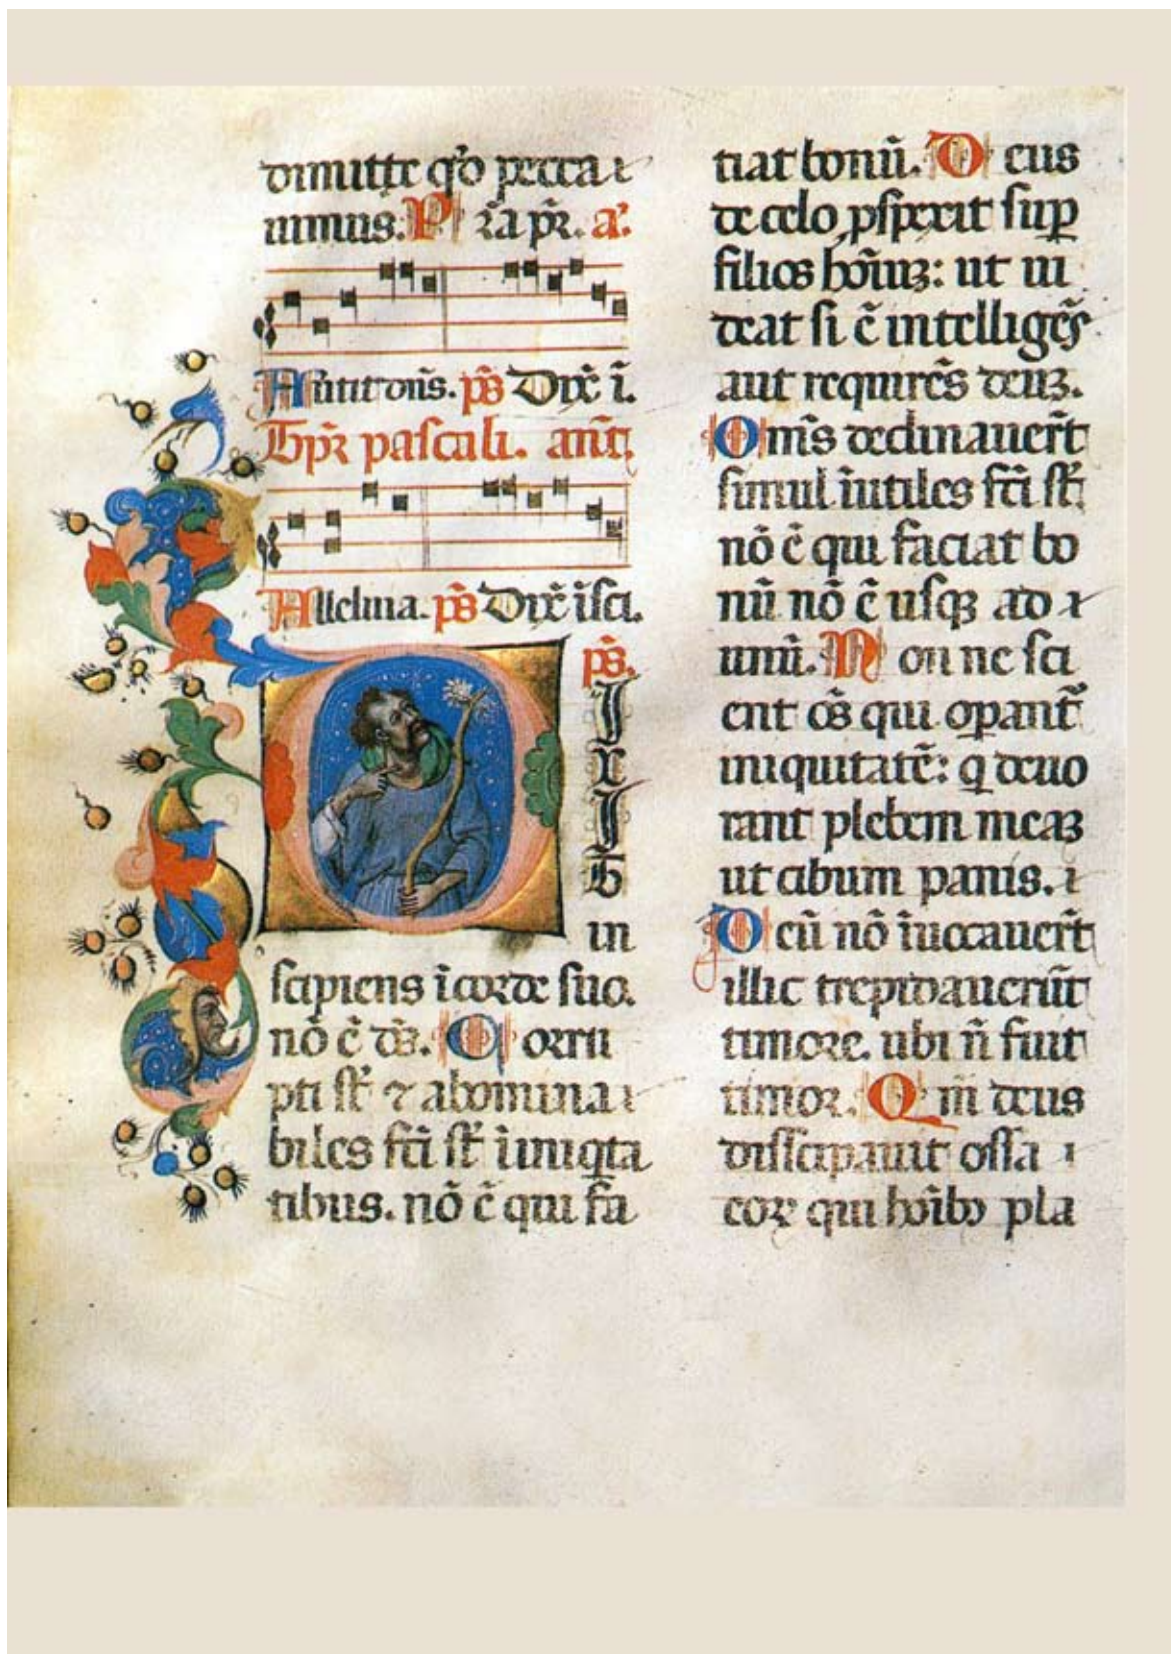 dimitte qͦo pecca
uimus. P r̄a pr̄. a᷎.
Auertit dn̄s. ps̄ Dix̄ ī.
Tp̄r pascali. an̄t
Alleluia. ps̄ Dix̄ īsci.
ps̄.
I
X
I
T
in
scipiens ī corde suo.
nō ē ds̄. C orru
pti st̄ ⁊ abomina
biles fc̄i st̄ ī iniqta
tibus. nō ē qui fa
ciat bonū. D eus
de celo ꝓspexit suꝑ
filios hoīuꝫ: ut ui
deat si ē intelligēs
aut requirēs deuꝫ.
Om̄s declinauer̄t
simul īutiles fc̄i st̄
nō ē qui faciat bo
nū nō ē usqꝫ ad
unū. N on ne sci
ent os̄ qui oꝑant̄
iniquitatē: q deuo
rant plebem meaꝫ
ut cibum panis.
D eū nō īuocauer̄t
illic trepidauerūt
timore. ubi n̄ fuit
timor. Q m̄ deus
dissipauit ossa
eoꝝ qui hoībꝰ pla